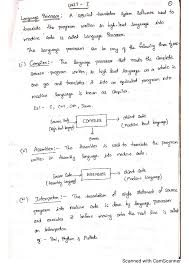 UNIT - I
Language Processor : A special translator system software used to
translate the program written in high-level language into
machine code is called Language Processor.
The language processor can be any of the following three types
(i) Compiler :- The language processor that reads the complete
source program written in high level language as a whole in
one go and translates it into an equivalent program into
machine language is known as Compiler.
Ex! - C, C++, C#, Java.
Source code → COMPILER → object code
(High level language) (Machine level language)
(ii) Assembler :- The Assembler is used to translate the program
written in Assembly language into machine code.
Source code → ASSEMBLER → object code
(Assembly language) (Machine language)
(iii) Interpreter :- The translation of single statement of source
program into machine code is done by language processor
and executes it before moving onto the next line is called
an Interpreter.
Eg - Perl, Python & Matlab.
Scanned with CamScanner